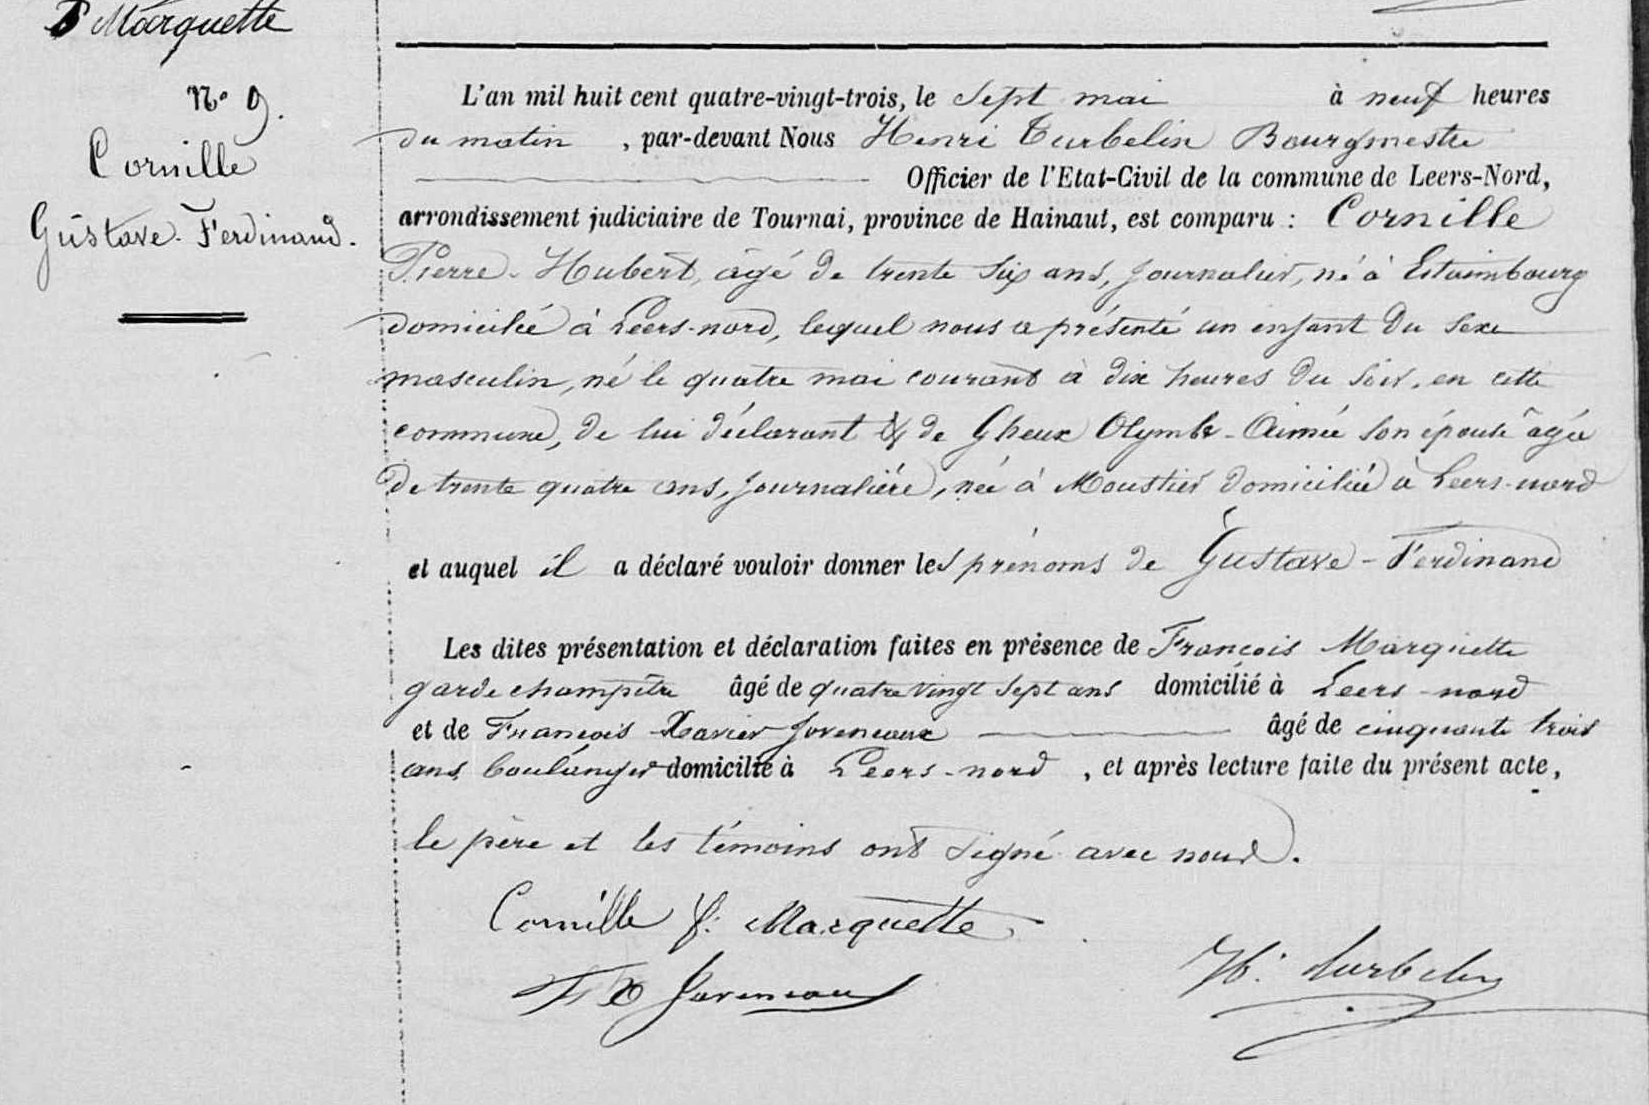 F Marquette
N° 9.
Cornille
Gustave-Ferdinand.
L'an mil huit cent quatre-vingt-trois, le sept mai à neuf heures
du matin, par-devant Nous Henri Turbelin Bourgmestre
Officier de l'Etat-Civil de la commune de Leers-Nord,
arrondissement judiciaire de Tournai, province de Hainaut, est comparu : Cornille
Pierre-Hubert, âgé de trente six ans, journalier, né à Estaimbourg
domicilié à Leers-nord, lequel nous a présenté un enfant du sexe
masculin, né le quatre mai courant à dix heures du soir, en cette
commune, de lui déclarant & de Gheux Olymbe-Aimée son épouse âgée
de trente quatre ans, journalière, née à Moustier domiciliée à Leers-nord
et auquel il a déclaré vouloir donner les prénoms de Gustave-Ferdinand
Les dites présentation et déclaration faites en présence de François Marquette
garde champêtre âgé de quatre vingt sept ans domicilié à Leers-nord
et de François Xavier Joveneaux âgé de cinquante trois
ans boulanger domicilié à Leers-nord, et après lecture faite du présent acte,
le père et les témoins ont signé avec nous.
Cornille f. Marquette
F X Joveneau
H. Turbelin